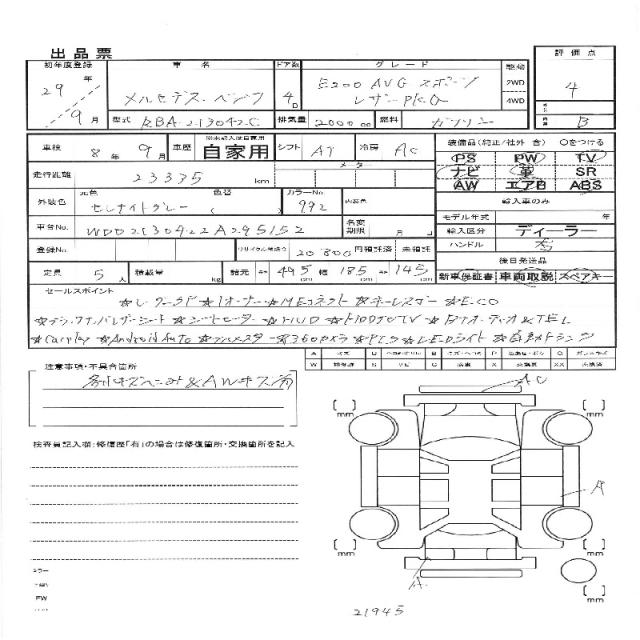 出品票
初年度登録 車名 ドア数 グレード 駆動 評価点
29年 メルセデス・ベンツ 4D E200 AVG スポーツ 2WD 4
9月 レザーPKG 4WD
型式 RBA-213042C 排気量 2000cc 燃料 ガソリン B
車検 8年9月 車歴 自家用 シフト AT 冷房 AC 装備品(純正/社外 含) ○をつける
PS PW TV
走行距離 23335 km メータ ナビ 革 SR
AW エアB ABS
外装色 元色 セレナイトグレー( 色替 ) カラーNo. 992 内装色 輸入車のみ
モデル年式 年
車台No. WDD2130422A295152 名変期限 月 日 輸入区分 ディーラー
登録No. リサイクル預託金 20800 円 預託済 未預託 ハンドル 右
後日発送品
定員 5人 積載量 kg 諸元 495(cm) 185(cm) 145(cm) 新車保証書 車両取説 スペアキー
セールスポイント
★レーダーP ★1オーナー ★MEコネクト ★キーレスゴー ★ECO
★ブラックナッパレザーシート ★シートヒーター ★HUD ★HDDナビTV ★BTオーディオ&TEL
★Carplay ★Android Auto ★ブルメスター ★360カメラ ★PTS ★LEDライト ★自動トランク
注意事項・不具合箇所
AC
検査員記入欄:修復歴「有」の場合は修復箇所・交換箇所を記入
mm mm
A
mm mm
A
カラー
PW
21945